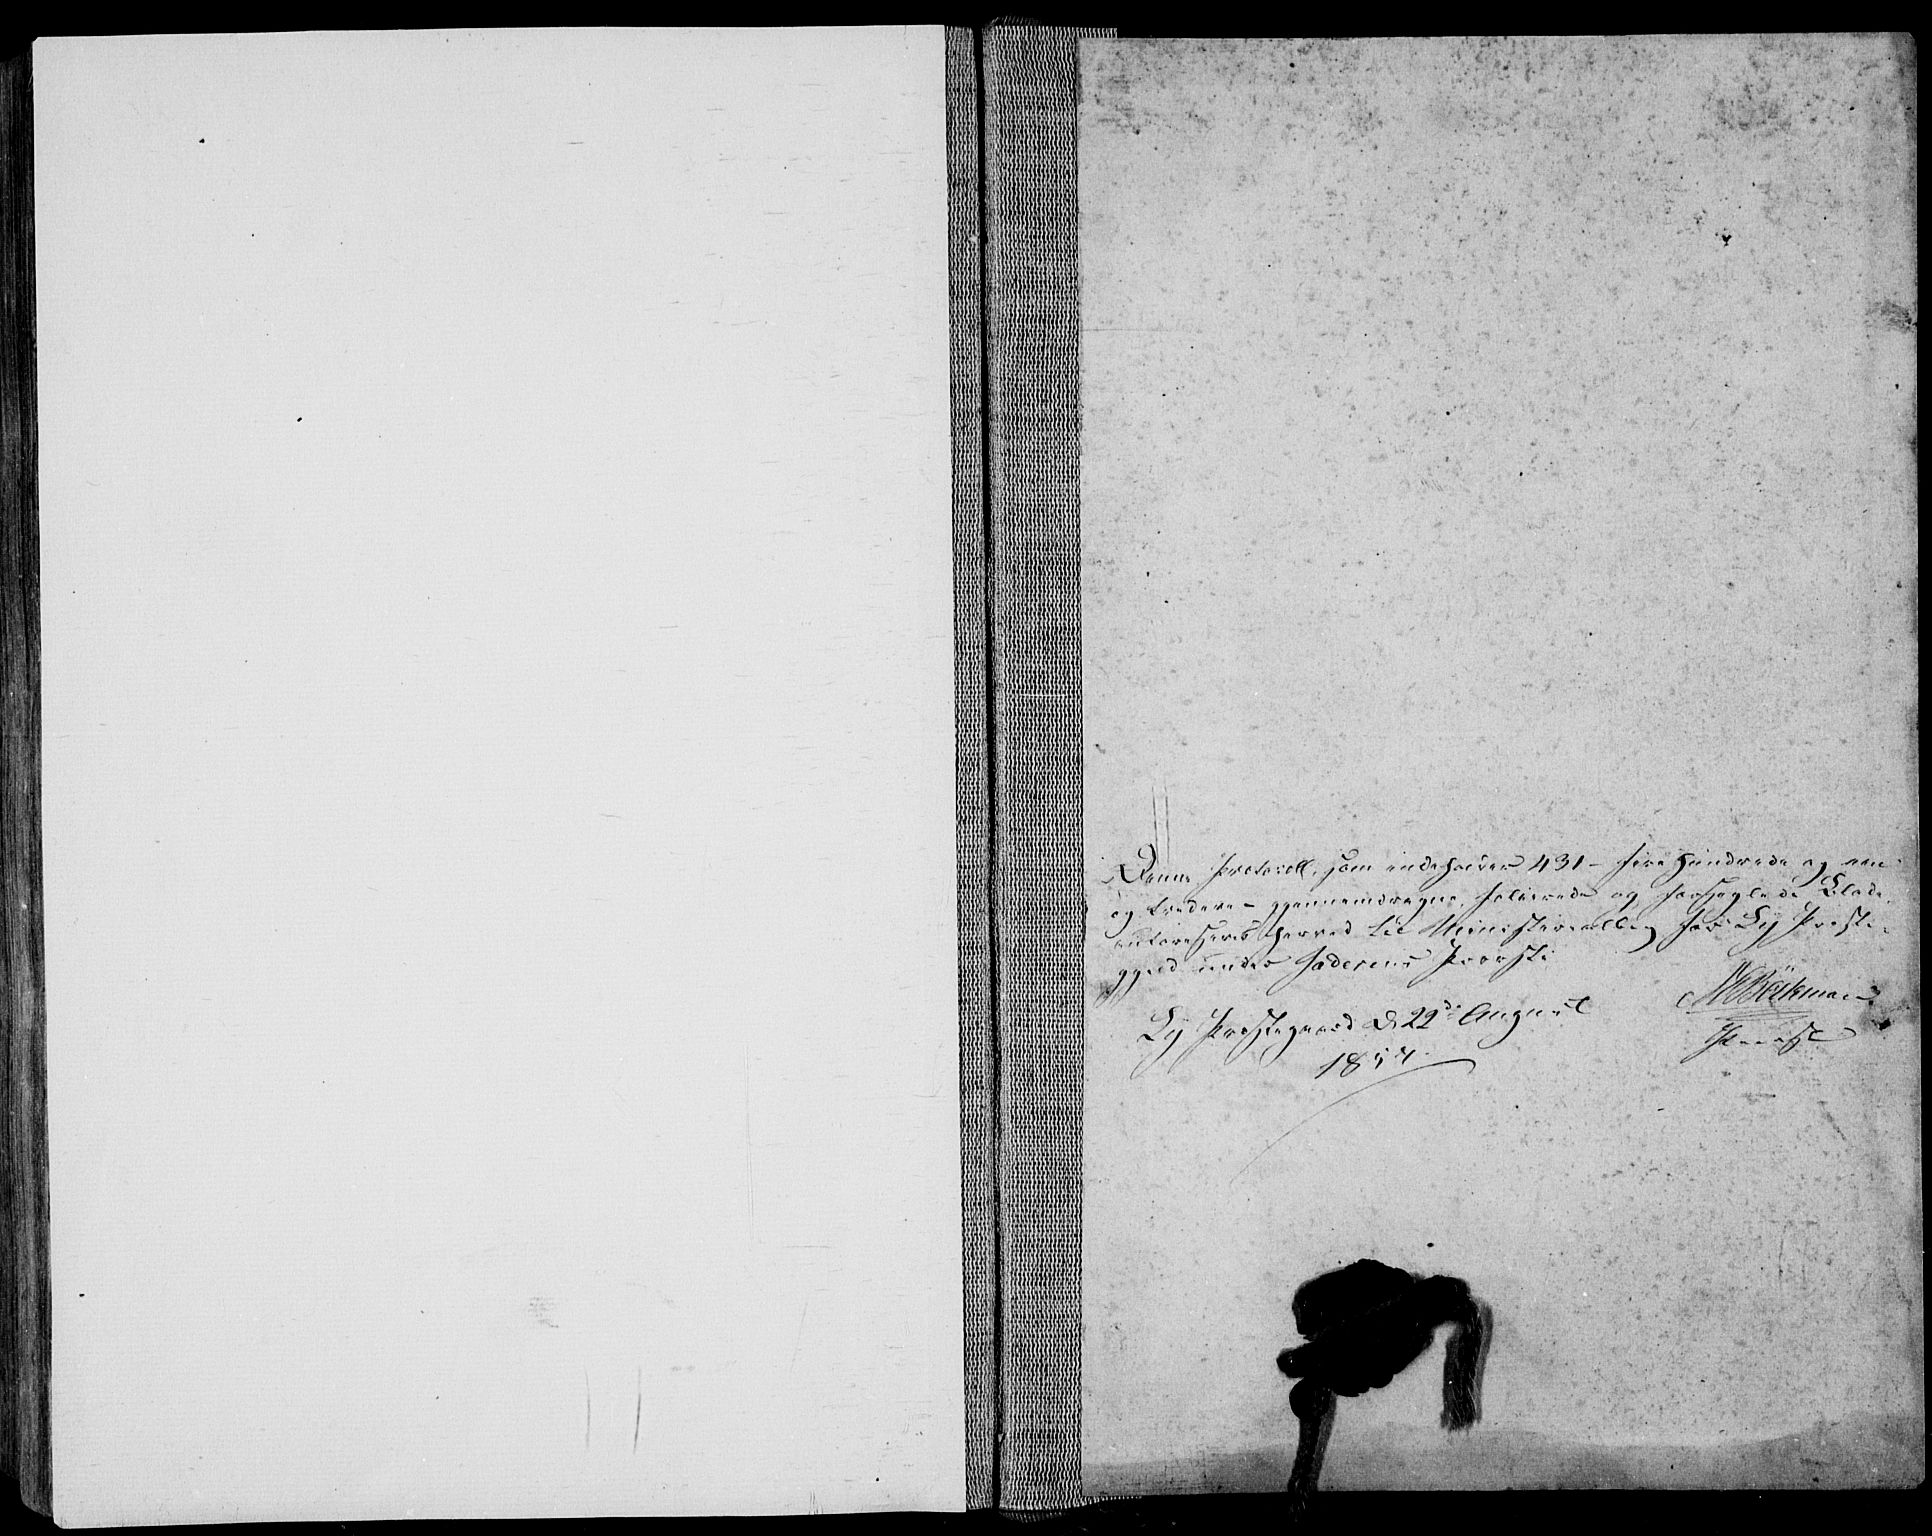 Denne Protocoll, som indeholder 431 – fire Hundrede og een
og tredeve – gjennemdragne, folierede og forseglede Blade,
autoriseres herved til Ministerialbog for Ly Præste-
gjeld under Jæderens Provsti
Ly Præstegaard d. 22de August
1857
Böckman
Provst